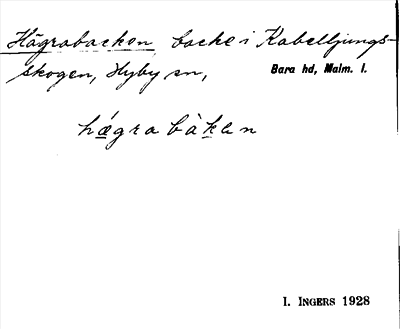 Hägrabacken, backe i Kabelljungs-
skogen, Hyby sn, Bara hd, Malm. l.
hǽgra bàken
I. INGERS 1928